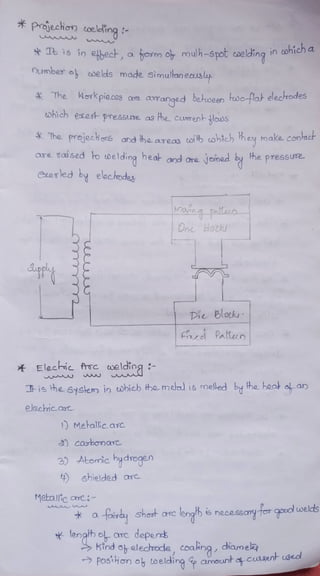 * projection welding :-
* It is in effect, a form of multi-spot welding in which a
number of welds made simultaneously.
* The Workpieces are arranged between two-flat electrodes
which exert pressure as the current flows
* The projections and the areas with which they make contact
are raised to welding heat and are joined by the pressure
exerted by electrodes
Moving pattern
Die blocks
Supply
Die Blocks
Fixed Pattern
* Electric Arc welding :-
It is the system in which the metal is melted by the heat of an
electric arc
1) Metallic arc
2) carbon arc
3) Atomic hydrogen
4) shielded arc
Metallic arc :-
* a fairly short arc length is necessary for good welds
* length of arc depends
→ Kind of electrode, coating, diameter
→ position of welding & amount of current used